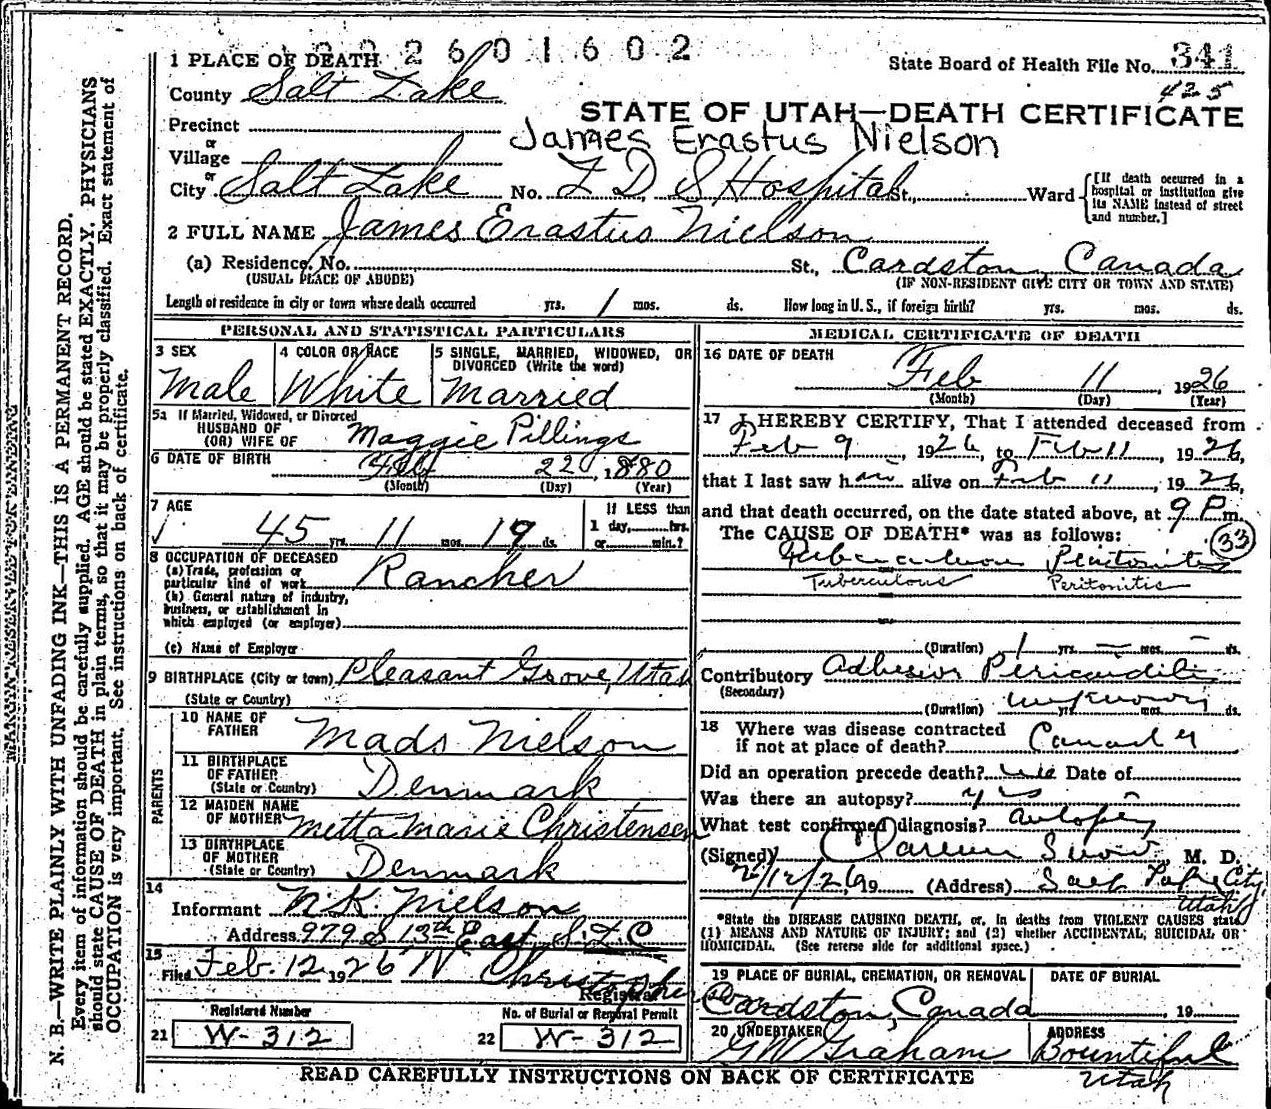 2 2 6 0 1 6 0 2
1 PLACE OF DEATH
State Board of Health File No. 341
425
County Salt Lake
STATE OF UTAH—DEATH CERTIFICATE
Precinct
James Erastus Nielson
or
Village
or
City Salt Lake No. L D S Hospital St., Ward
[If death occurred in a hospital or institution give its NAME instead of street and number.]
2 FULL NAME James Erastus Nielson
(a) Residence. No. St., Cardston, Canada
(USUAL PLACE OF ABODE) (IF NON-RESIDENT GIVE CITY OR TOWN AND STATE)
Length of residence in city or town where death occurred yrs. 1 mos. ds. How long in U. S., if foreign birth? yrs. mos. ds.
PERSONAL AND STATISTICAL PARTICULARS
3 SEX
Male
4 COLOR OR RACE
White
5 SINGLE, MARRIED, WIDOWED, OR DIVORCED (Write the word)
Married
5a If Married, Widowed, or Divorced
HUSBAND OF
(OR) WIFE OF Maggie Pillings
6 DATE OF BIRTH Feb 22, 1880
(Month) (Day) (Year)
7 AGE
45 yrs. 11 mos. 19 ds.
If LESS than
1 day, hrs.
or min.?
8 OCCUPATION OF DECEASED
(a) Trade, profession or
particular kind of work Rancher
(b) General nature of industry,
business, or establishment in
which employed (or employer)
(c) Name of Employer
9 BIRTHPLACE (City or town) Pleasant Grove, Utah
(State or Country)
PARENTS
10 NAME OF
FATHER Mads Nielson
11 BIRTHPLACE
OF FATHER
(State or Country) Denmark
12 MAIDEN NAME
OF MOTHER Metta Marie Christensen
13 BIRTHPLACE
OF MOTHER
(State or Country) Denmark
14
Informant N K Nielson
Address 979 S 13th East S. L. C
15
Filed Feb. 12 1926 W Christopher
Registrar
Registered Number
21 W-312
No. of Burial or Removal Permit
22 W-312
MEDICAL CERTIFICATE OF DEATH
16 DATE OF DEATH
Feb 11, 1926
(Month) (Day) (Year)
17 I HEREBY CERTIFY, That I attended deceased from
Feb 9, 1926, to Feb 11, 1926,
that I last saw him alive on Feb 11, 1926,
and that death occurred, on the date stated above, at 9 P m.
The CAUSE OF DEATH* was as follows: 33
Tuberculous Peritonitis
Tuberculous Peritonitis
(Duration) 1 yrs. — mos. — ds.
Contributory Adhesive Pericarditis
(Secondary)
(Duration) unknown yrs. mos. ds.
18 Where was disease contracted
if not at place of death? Canada
Did an operation precede death? Date of
Was there an autopsy? yes
What test confirmed diagnosis? autopsy
(Signed) Clarence Snow, M. D.
2/12/26 19 (Address) Salt Lake City, Utah
*State the DISEASE CAUSING DEATH, or, in deaths from VIOLENT CAUSES state
(1) MEANS AND NATURE OF INJURY; and (2) whether ACCIDENTAL, SUICIDAL OR
HOMICIDAL. (See reverse side for additional space.)
19 PLACE OF BURIAL, CREMATION, OR REMOVAL
Cardston, Canada
DATE OF BURIAL
, 19
20 UNDERTAKER
G W Graham
ADDRESS
Bountiful
Utah
READ CAREFULLY INSTRUCTIONS ON BACK OF CERTIFICATE
MARGIN RESERVED FOR BINDING
N. B.—WRITE PLAINLY WITH UNFADING INK—THIS IS A PERMANENT RECORD.
Every item of information should be carefully supplied. AGE should be stated EXACTLY. PHYSICIANS
should state CAUSE OF DEATH in plain terms, so that it may be properly classified. Exact statement of
OCCUPATION is very important. See instructions on back of certificate.